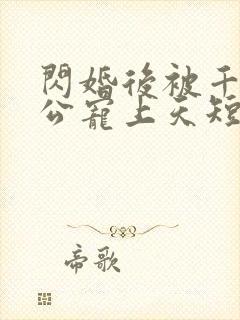 閃婚後被千
公寵上天短
帝歌